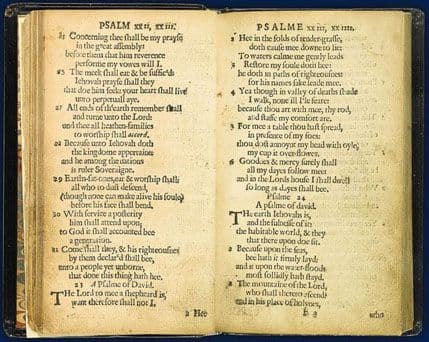 PSALM xxii, xxiii.
25 Concerning thee shall be my prayse
in the great assembly:
before them that him reverence
performe my vowes will I.
26 The meek shall eat & be suffic'd
Iehovah prayse shall they
that doe him seek: your heart shall live
unto perpetuall aye.
27 All ends of th'earth remember shall
and turne unto the Lord:
and thee all heathen-families
to worship shall accord.
28 Because unto Iehovah doth
the kingdome appertaine:
and he among the nations
is ruler Soveraigne.
29 Earths-fat-ones, eat & worship shall
all who to dust descend,
(though none can make alive his soule)
before his face shall bend.
30 With service a posterity
him shall attend upon,
to God it shall accounted bee
a generation.
31 Come shall they, & his righteousnes
by them declar'd shall bee,
unto a people yet unborne,
that done this thing hath hee.
23 A Psalme of David.
THe Lord to mee a shepheard is,
want therefore shall not I.
2 Hee
PSALME xxiii, xxiiii.
2 Hee in the folds of tender-grasse,
doth cause mee downe to lie:
To waters calme me gently leads
3 Restore my soule doth hee:
he doth in paths of righteousnes:
for his names sake leade mee.
4 Yea though in valley of deaths shade
I walk, none ill I'le feare:
because thou art with mee, thy rod,
and staffe my comfort are.
5 For mee a table thou hast spread,
in presence of my foes:
thou dost annoynt my head with oyle,
my cup it over-flowes.
6 Goodnes & mercy surely shall
all my dayes follow mee:
and in the Lords house I shall dwell
so long as dayes shall bee.
Psalme 24
A psalme of david.
THe earth Iehovahs is,
and the fulnesse of it:
the habitable world, & they
that there upon doe sit.
2 Because upon the seas,
hee hath it firmly layd:
and it upon the water-floods
most sollidly hath stayd.
3 The mountaine of the Lord,
who shall thereto ascend?
and in his place of holynes,
who